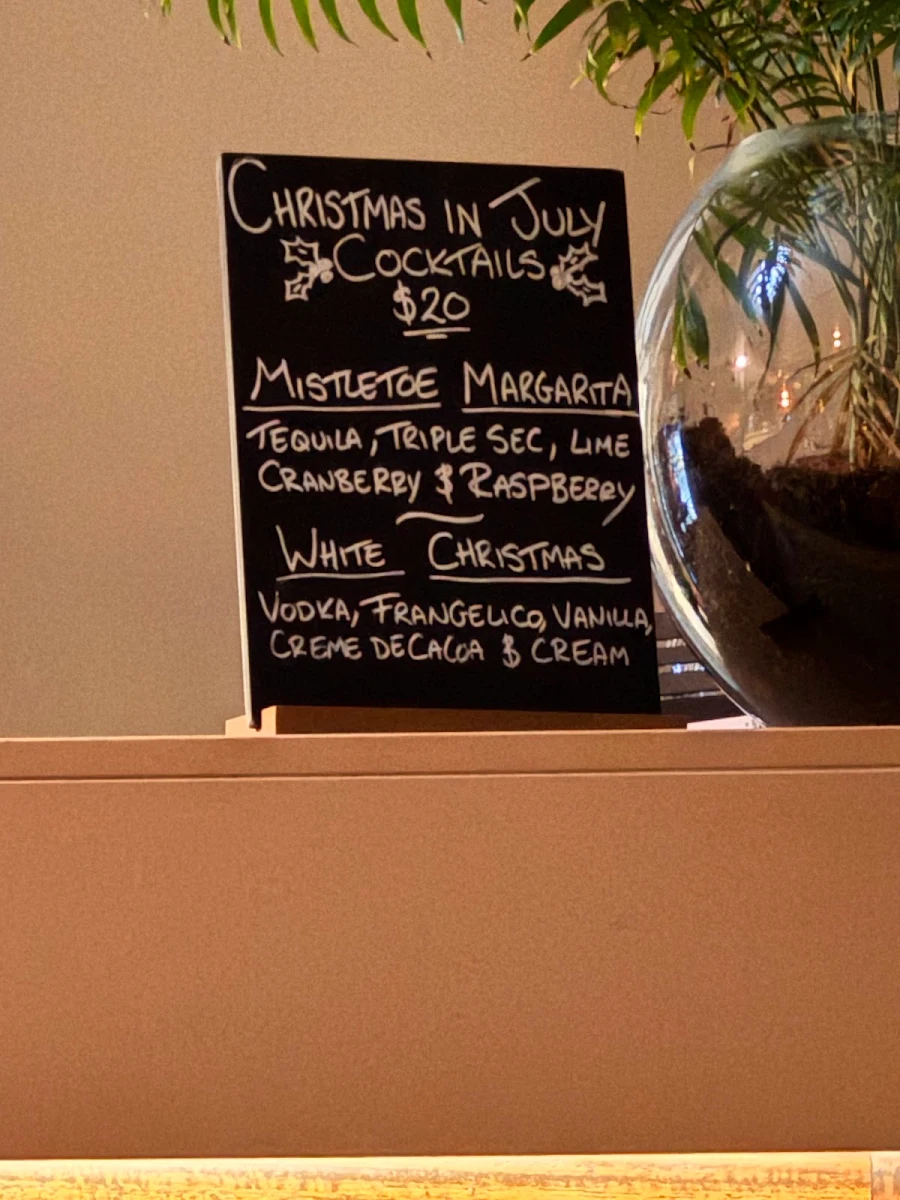 CHRISTMAS IN JULY
COCKTAILS
$20
MISTLETOE MARGARITA
TEQUILA, TRIPLE SEC, LIME
CRANBERRY & RASPBERRY
WHITE CHRISTMAS
VODKA, FRANGELICO, VANILLA,
CREME DE CACOA & CREAM